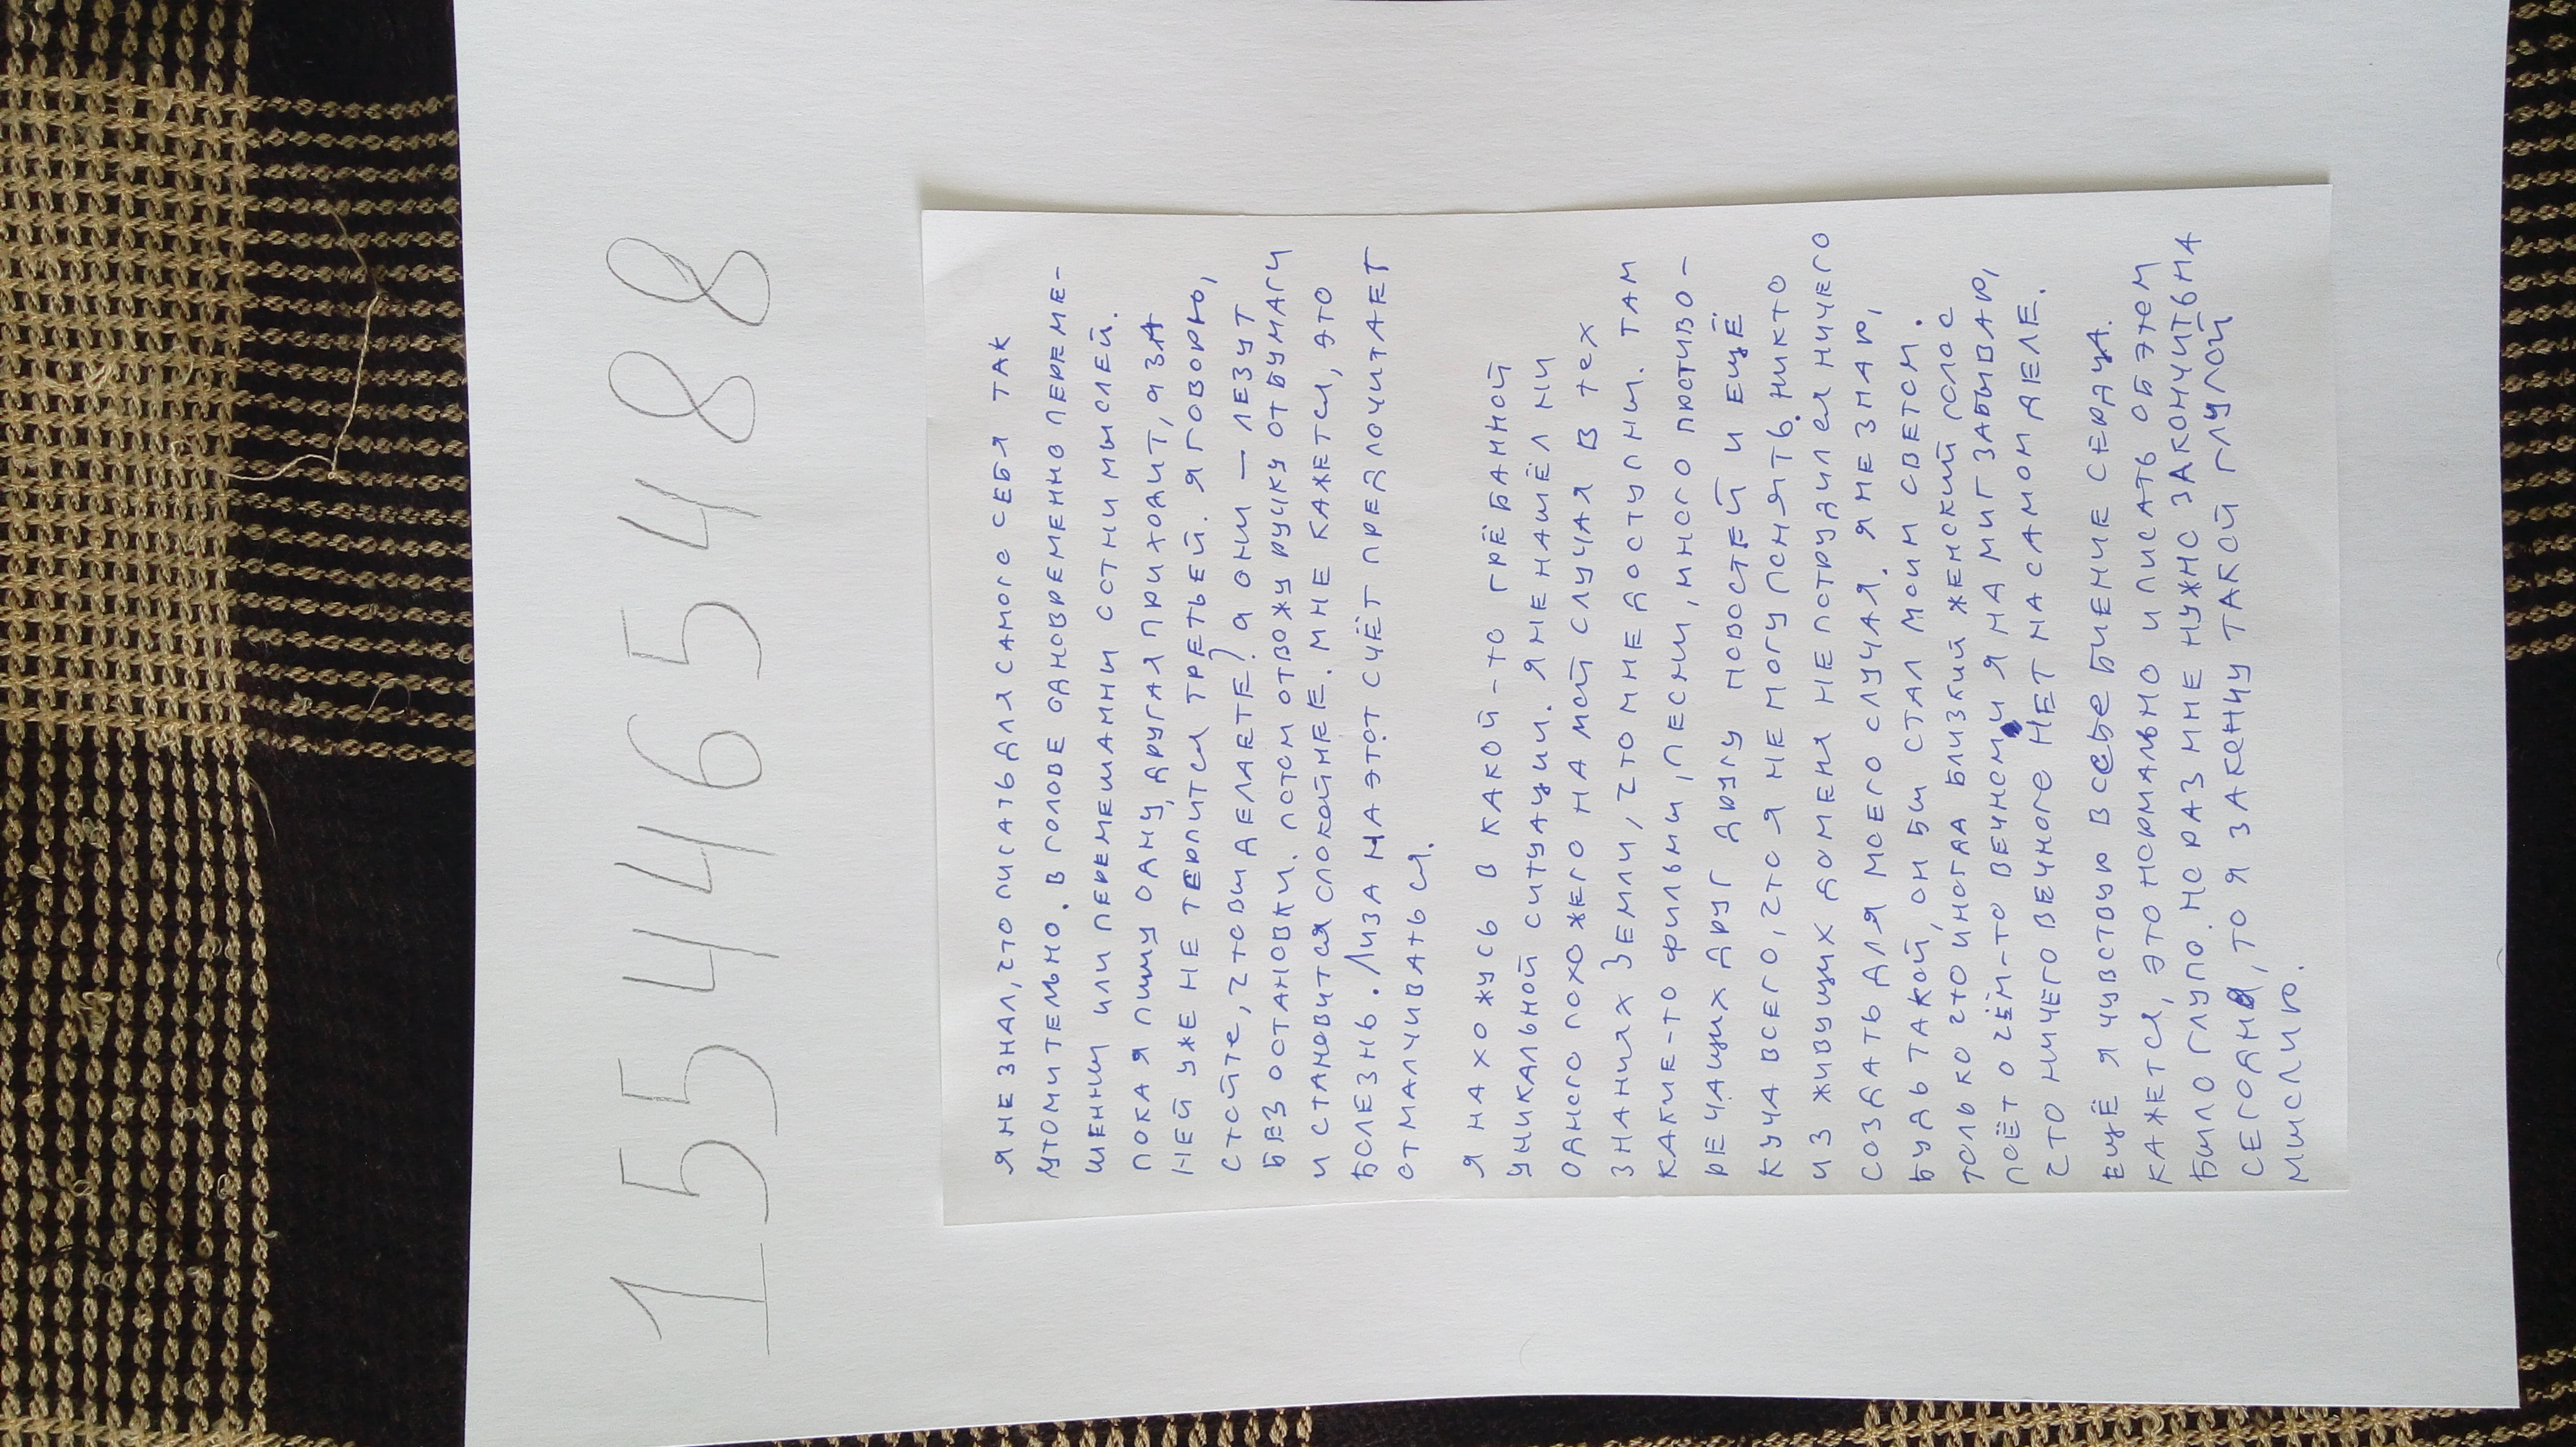 15546548 8
Я НЕ ЗНАЛ, ЧТО ПИСАТЬ ДЛЯ САМОГО СЕБЯ ТАК
УТОМИТЕЛЬНО. В ГОЛОВЕ ОДНОВРЕМЕННО ПЕРЕМЕ-
ШЕННЫ ИЛИ ПЕРЕМЕШАННЫ СОТНИ МЫСЛЕЙ.
ПОКА Я ПИШУ ОДНУ, ДРУГАЯ ПРИХОДИТ, А ЗА
НЕЙ УЖЕ НЕ ТЕРПИТСЯ ТРЕТЬЕЙ. Я ГОВОРЮ,
СТОЙТЕ, ЧТО ВЫ ДЕЛАЕТЕ? А ОНИ — ЛЕЗУТ
БЕЗ ОСТАНОВКИ. ПОТОМ ОТВОЖУ РУЧКУ ОТ БУМАГИ
И СТАНОВИТСЯ СПОКОЙНЕЕ. МНЕ КАЖЕТСЯ, ЭТО
БОЛЕЗНЬ. ЛИЗА НА ЭТОТ СЧЁТ ПРЕДПОЧИТАЕТ
ОТМАЛЧИВАТЬСЯ.
Я НАХОЖУСЬ В КАКОЙ-ТО ГРЁБАННОЙ
УНИКАЛЬНОЙ СИТУАЦИИ. Я НЕ НАШЁЛ НИ
ОДНОГО ПОХОЖЕГО НА МОЙ СЛУЧАЯ В ТЕХ
ЗНАНИЯХ ЗЕМЛИ, ЧТО МНЕ ДОСТУПНЫ. ТАМ
КАКИЕ-ТО ФИЛЬМЫ, ПЕСНИ, МНОГО ПРОТИВО-
РЕЧАЩИХ ДРУГ ДРУГУ НОВОСТЕЙ И ЕЩЁ
КУЧА ВСЕГО, ЧТО Я НЕ МОГУ ПОНЯТЬ. НИКТО
ИЗ ЖИВУЩИХ ДО МЕНЯ НЕ ПОТРУДИЛСЯ НИЧЕГО
СОЗДАТЬ ДЛЯ МОЕГО СЛУЧАЯ. Я НЕ ЗНАЮ,
БУДЬ ТАКОЙ, ОН БЫ СТАЛ МОИМ СВЕТОМ.
ТОЛЬКО ЧТО ИНОГДА БЛИЗКИЙ ЖЕНСКИЙ ГОЛОС
ПОЁТ О ЧЁМ-ТО ВЕЧНОМ И Я НА МИГ ЗАБЫВАЮ,
ЧТО НИЧЕГО ВЕЧНОГО НЕТ НА САМОМ ДЕЛЕ.
ЕЩЁ Я ЧУВСТВУЮ В СЕБЕ БИЕНИЕ СЕРДЦА.
КАЖЕТСЯ, ЭТО НОРМАЛЬНО И ПИСАТЬ ОБ ЭТОМ
БЫЛО ГЛУПО. НО РАЗ МНЕ НУЖНО ЗАКОНЧИТЬ НА
СЕГОДНЯ, ТО Я ЗАКОНЧУ ТАКОЙ ГЛУПОЙ
МЫСЛЬЮ.